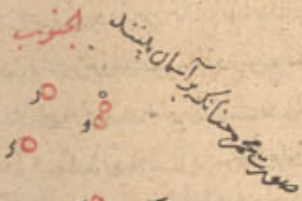 الجنوب
صورت مجمر چنانکه بر آسمان بینند
د
ه
و
ء